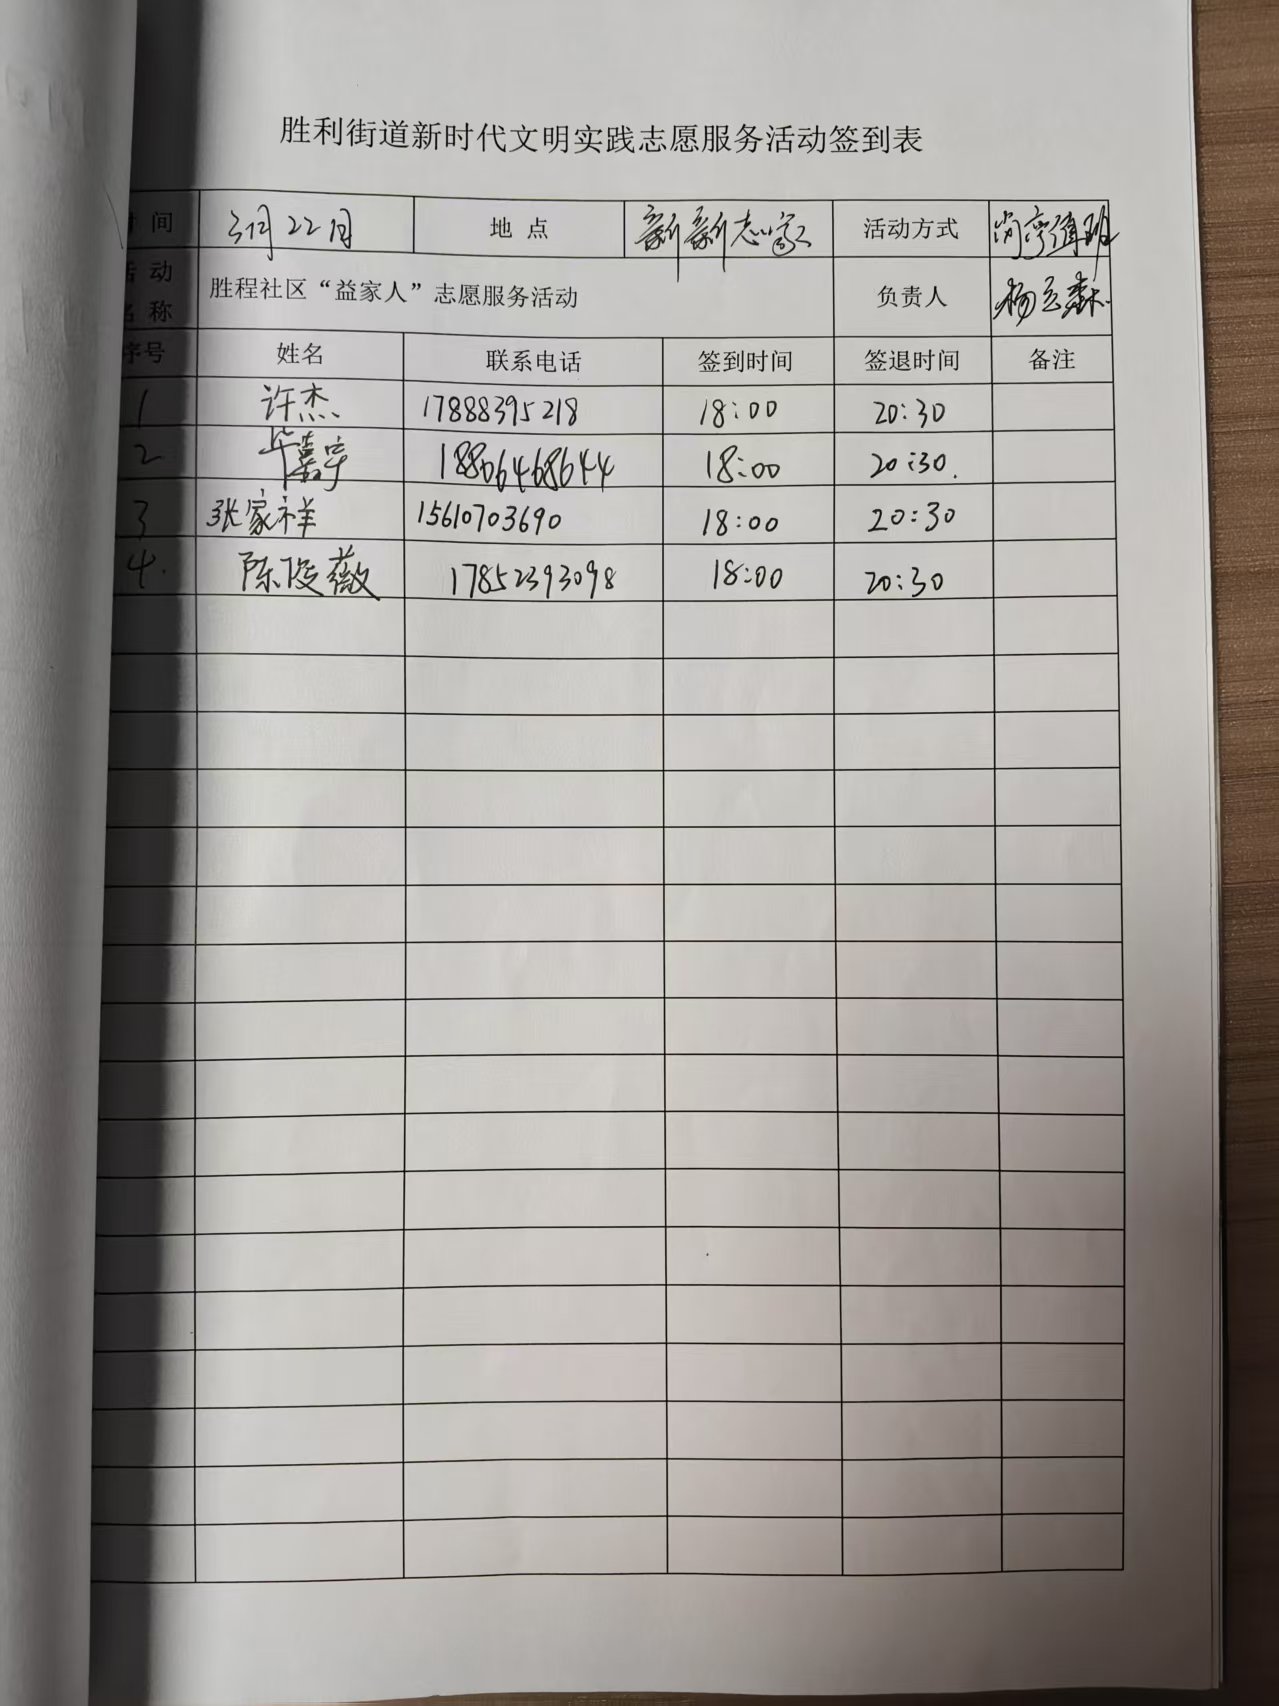 胜利街道新时代文明实践志愿服务活动签到表
时 间 3月22日 地 点 新新志家 活动方式 岗亭值班
活 动 名 称 胜程社区“益家人”志愿服务活动 负责人
序号 姓名 联系电话 签到时间 签退时间 备注
1 许杰 17888395218 18:00 20:30
2 毕嘉宇 18806468644 18:00 20:30.
3 张家祥 15610703690 18:00 20:30
4. 陈俊薇 17852393098 18:00 20:30